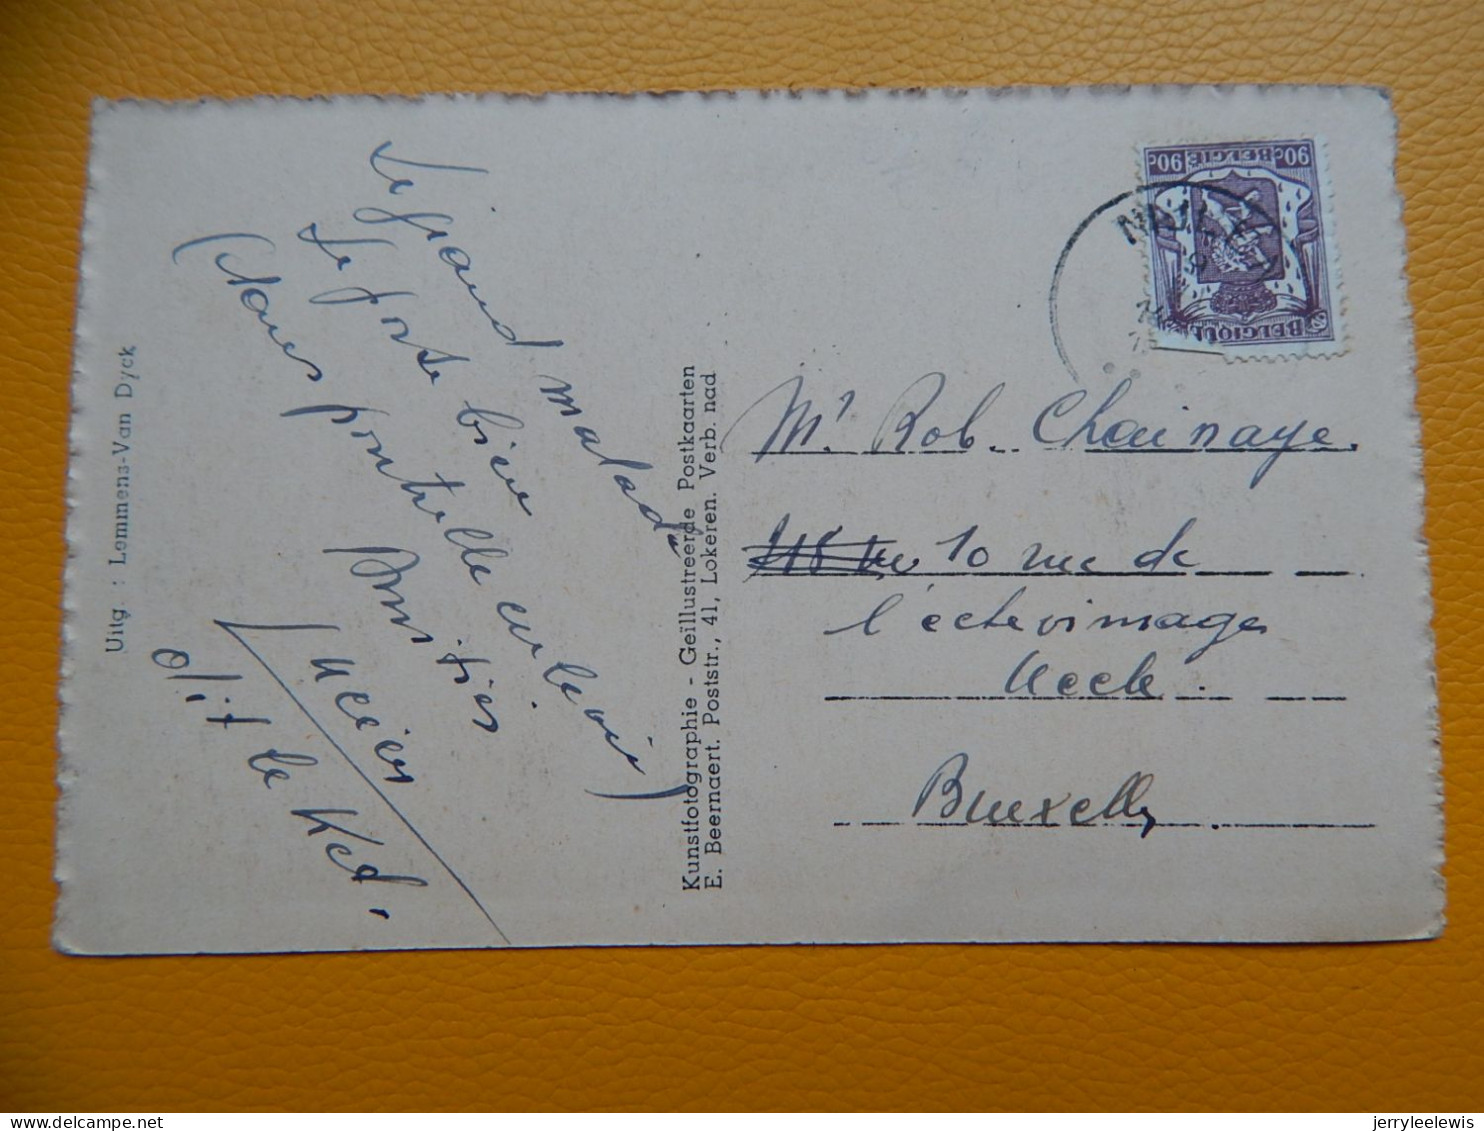 Le grand malade
se porte bien
(dans poutrelle en bois)
Amitiés
Lucien
dit le Ked.
Uitg : Lemmens-Van Dyck
Kunstfotographie - Geïllustreerde Postkaarten
E. Beernaert. Poststr., 41, Lokeren. Verb. nad
90c BELGIË 90c
BELGIQUE
NIJL
Mr Rob. Chainaye.
10 rue de
l'echevinage
Uccle.
Bruxelles
jerryleelewis